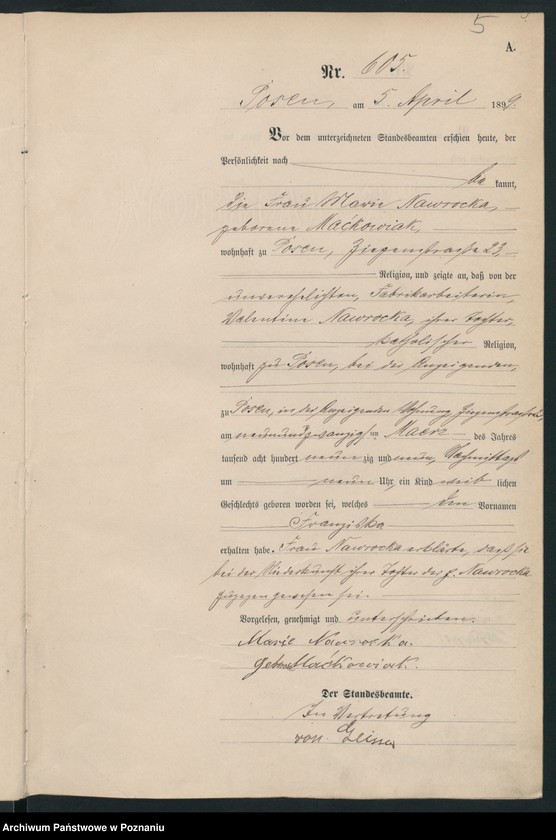 5
A.
Nr. 605.
Posen, am 5. April 1899.
Vor dem unterzeichneten Standesbeamten erschien heute, der
Persönlichkeit nach
be kannt,
die Frau Marie Nawrocka,
geborene Maćkowiak,
wohnhaft zu Posen, Ziegenstrasse 23,
Religion, und zeigte an, daß von der
unverehelichten, Fabrikarbeiterin
Valentine Nawrocka, ihrer Tochter,
katholischer Religion,
wohnhaft zu Posen, bei der Anzeigenden,
zu Posen, in der Anzeigenden Wohnung, Ziegenstrasse 23,
am neunundzwanzigsten Maerz des Jahres
tausend acht hundert neun zig und neun, Nachmittags
um neun Uhr, ein Kind weib lichen
Geschlechts geboren worden sei, welches den Vornamen
Franziska
erhalten habe. Frau Nawrocka erklärte, dass sie
bei der Niederkunft ihrer Tochter der p. Nawrocka
zugegen gewesen sei.
Vorgelesen, genehmigt und unterschrieben.
Marie Nawrocka.
geb. Maćkowiak.
Der Standesbeamte.
In Vertretung
von
Archiwum Państwowe w Poznaniu